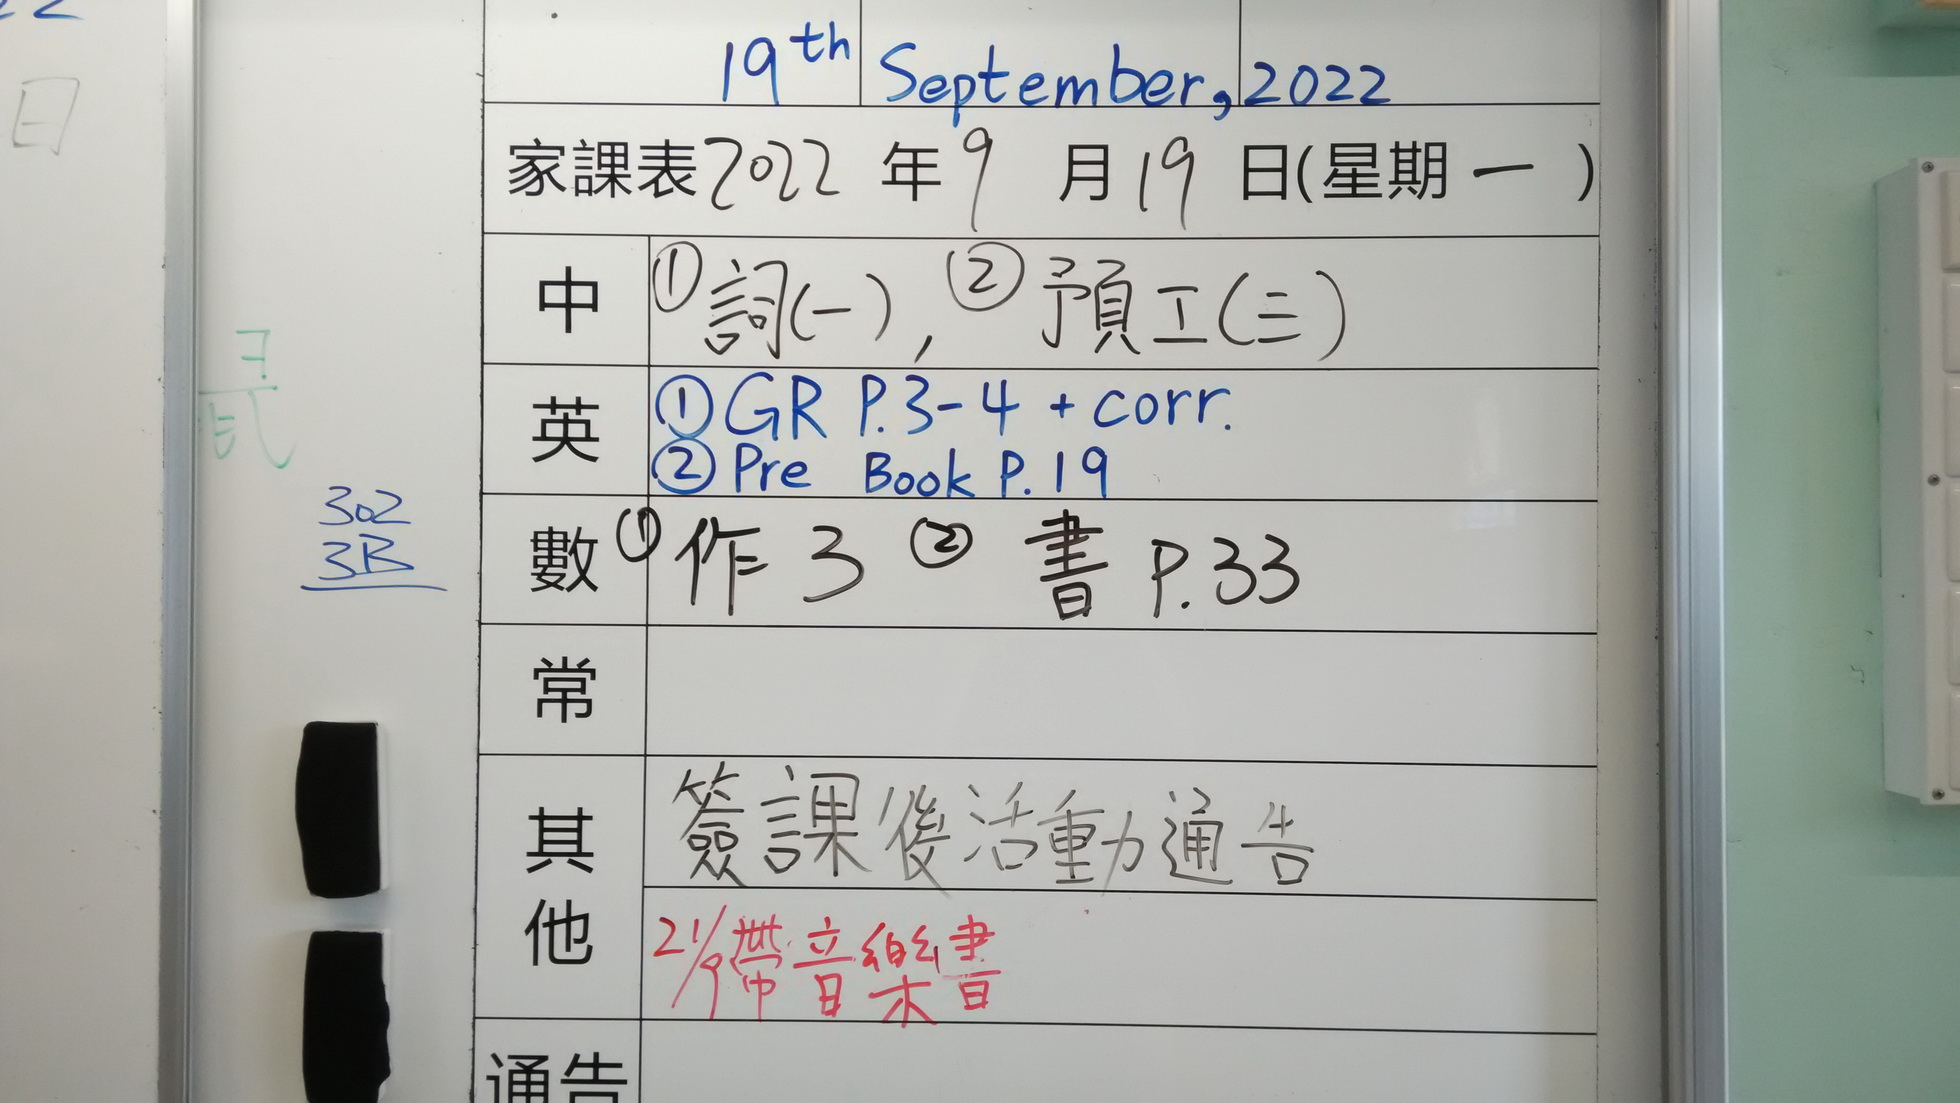 19th September, 2022
家課表2022年9月19日(星期一)
中 ①詞(一), ②預工(三)
英 ①GR P.3-4 + corr.
②Pre Book P.19
302
3B
數 ①作3 ②書P.33
常
其他 簽課後活動通告
21/9帶音樂書
通告